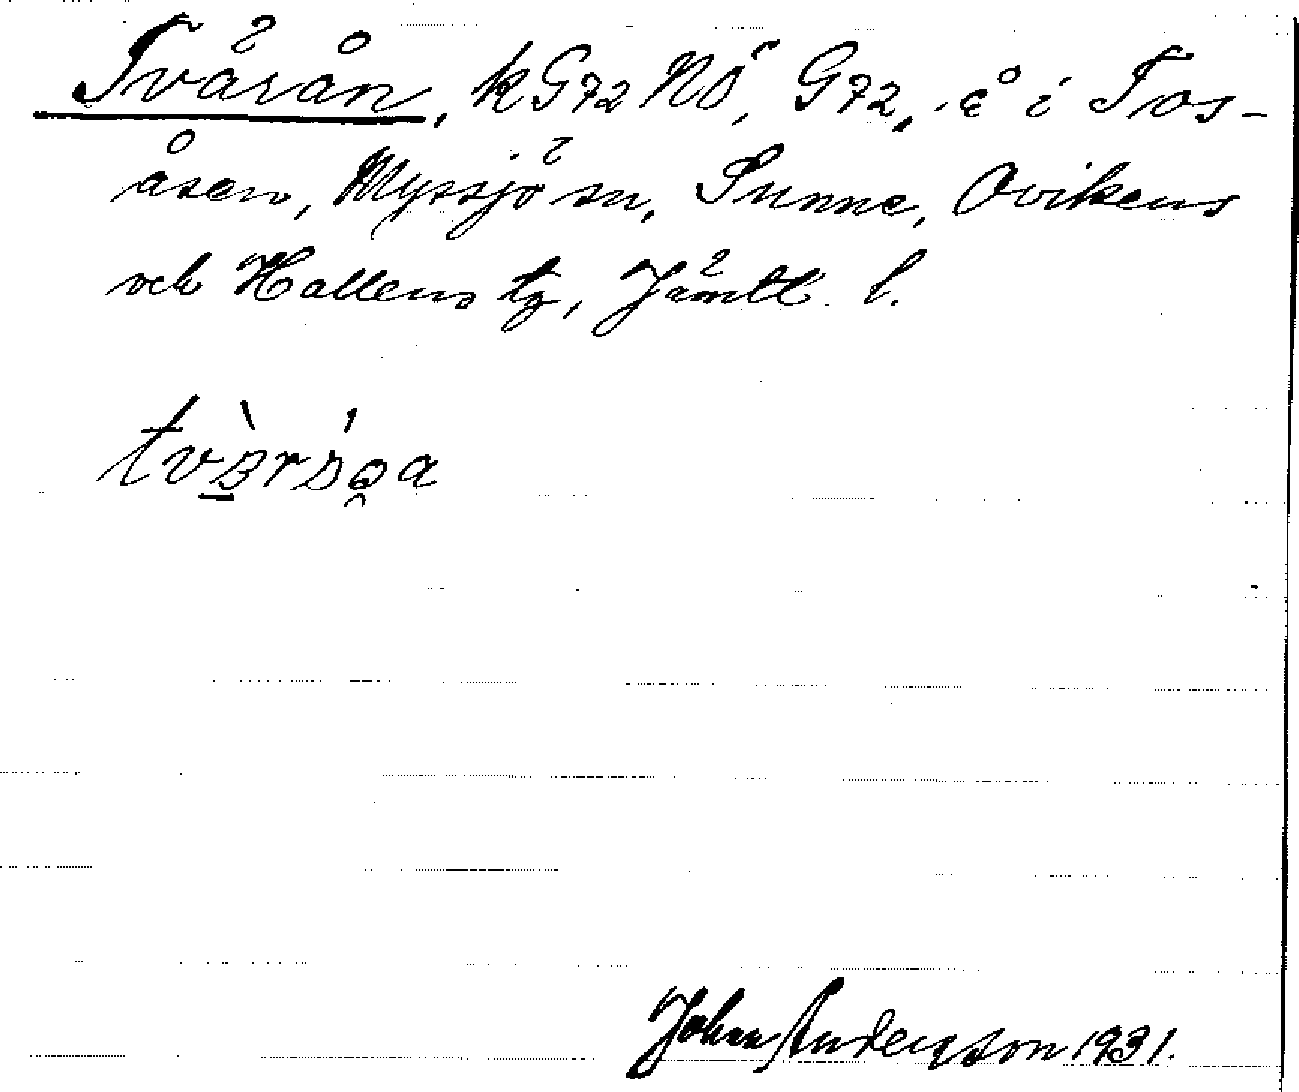 Tvärån, kG72NÖ, G72, å i Tos-
åsen, Myssjö sn, Sunne, Ovikens
och Hallens tg, Jämtl. l.
John Anderson 1931.